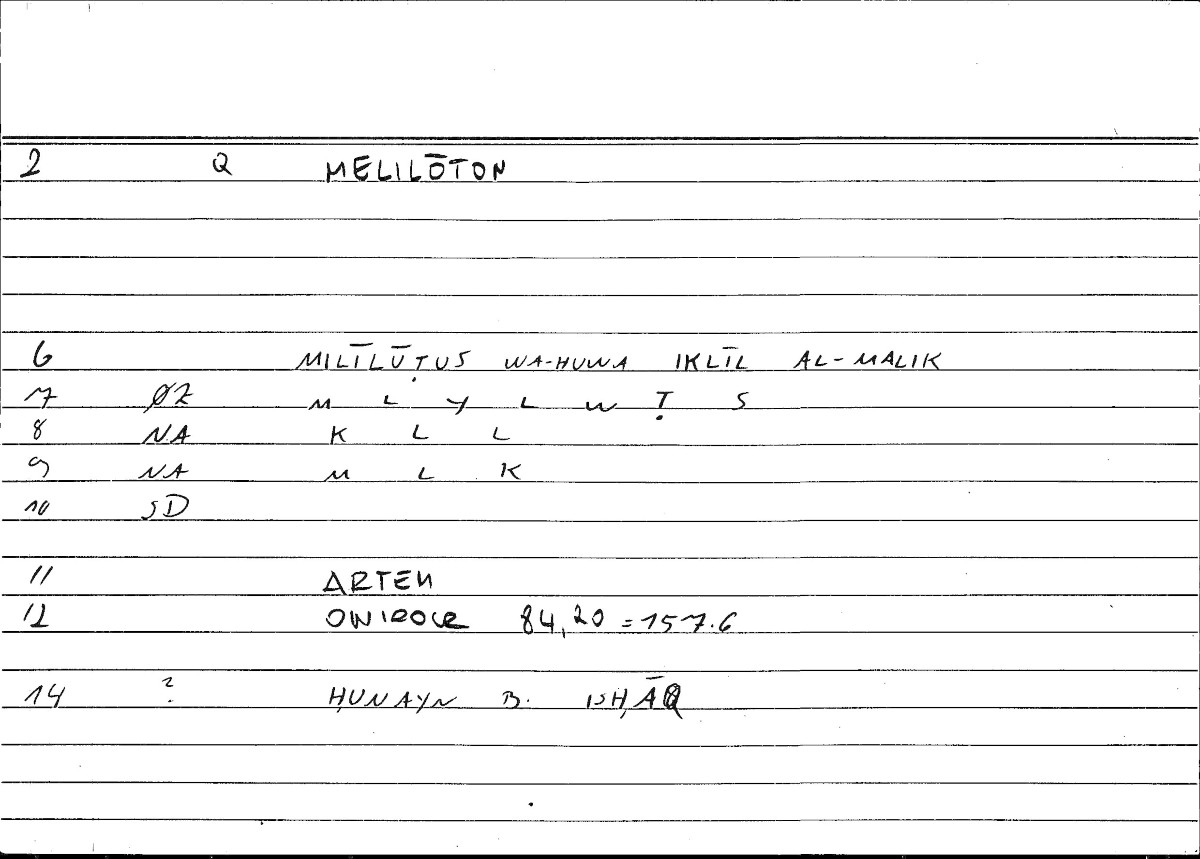 2 Q MELILŌTON
6 MILĪLŪṬUS WA-HUWA IKLĪL AL-MALIK
7 ØZ M L Y L W Ṭ S
8 NA K L L
9 NA M L K
10 SD
11 ARTEM
12 ONIROCR 84,20 = 157.6
14 ? ḤUNAYN B. ISḤĀQ